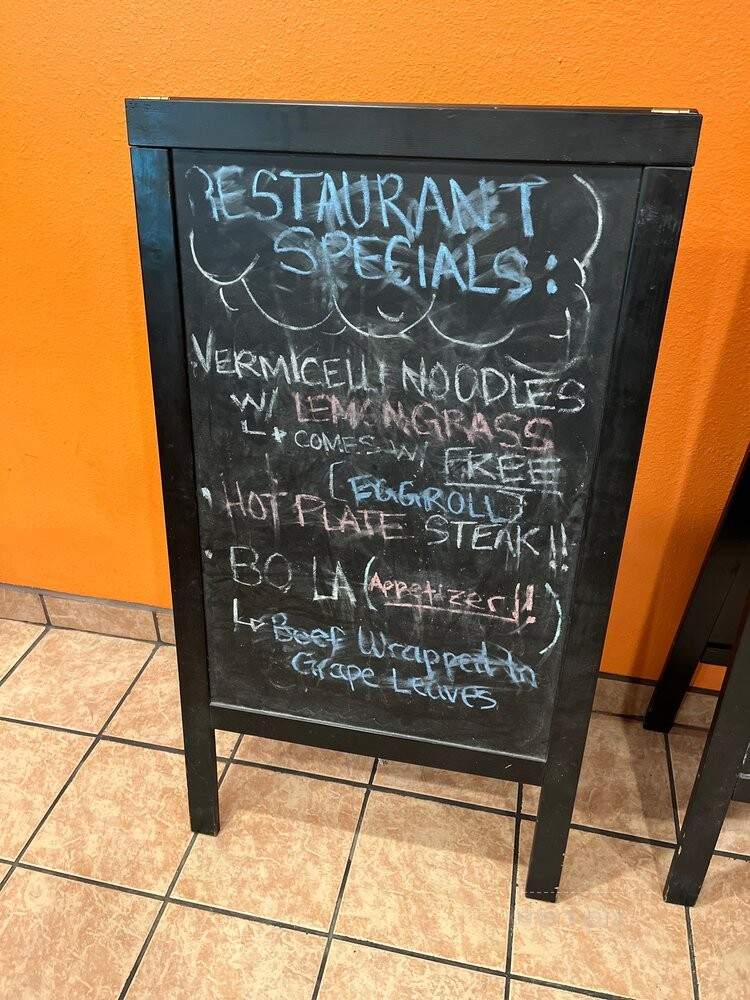 RESTAURANT
SPECIALS:
VERMICELLI NOODLES
W/ LEMONGRASS
COMES W/ FREE
[EGGROLL]
HOT PLATE STEAK!!
BO LA (Appetizer!!)
Beef Wrapped In
Grape Leaves